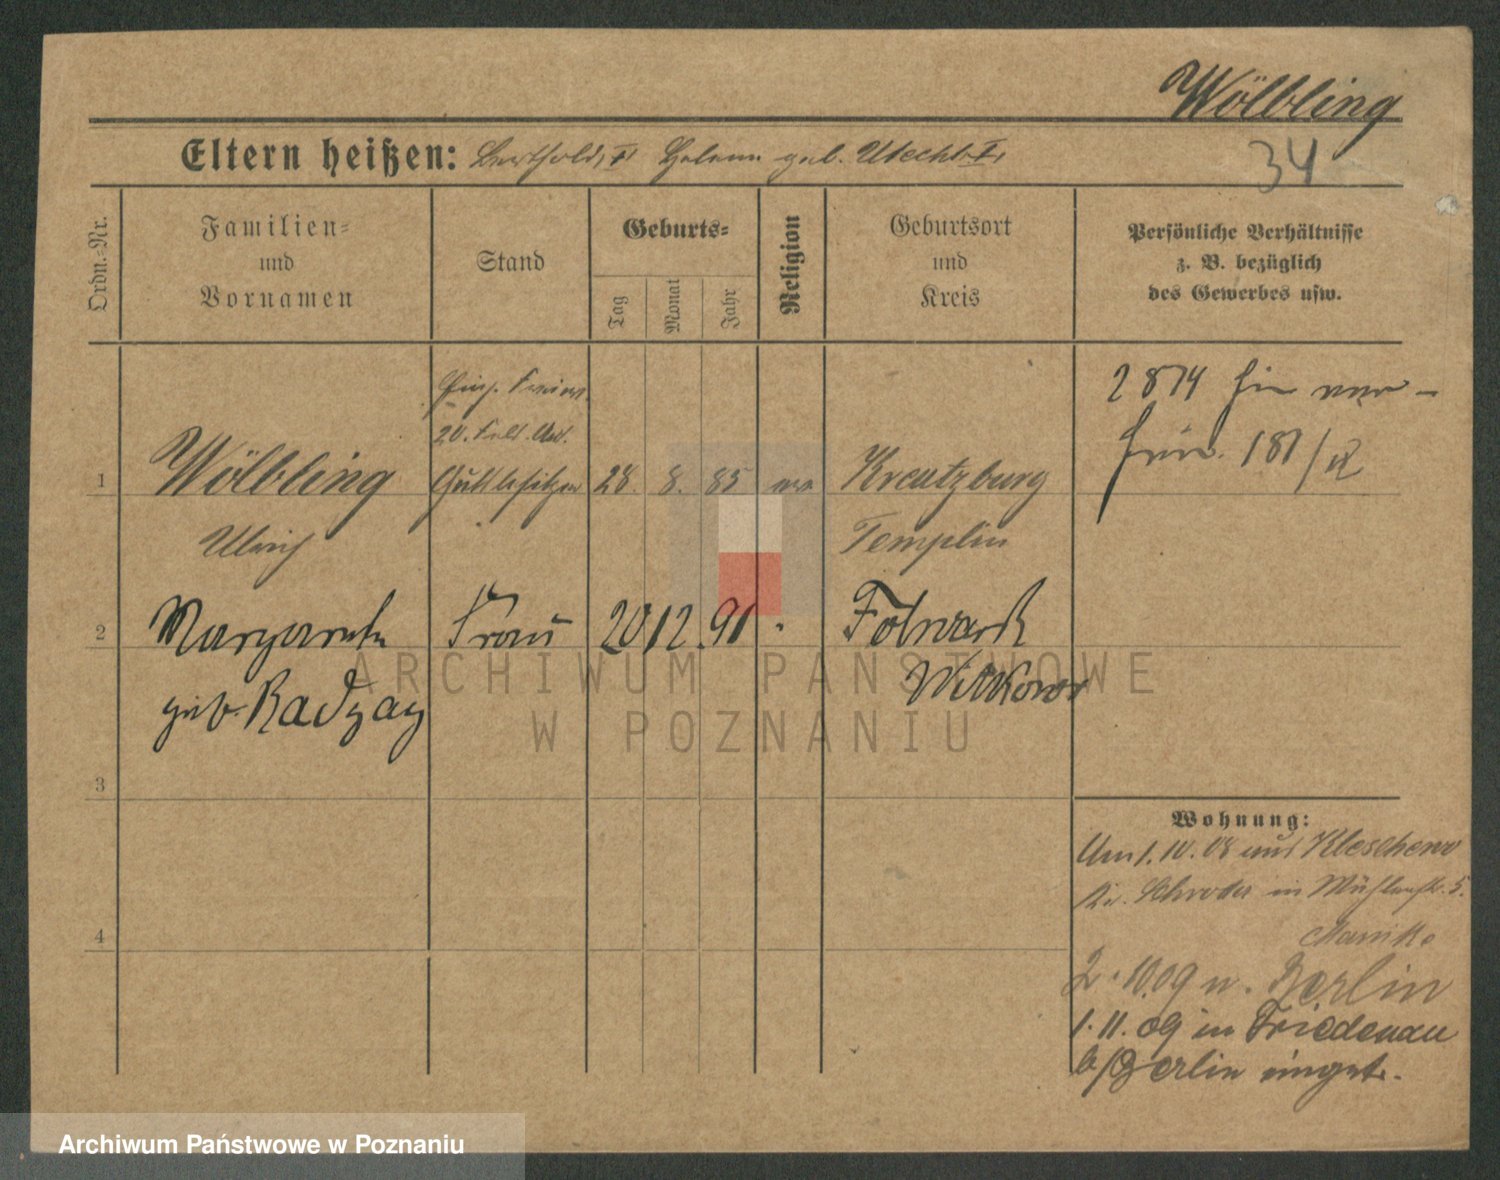 Wölbling
34
Eltern heißen: Berthold, †, Helene geb. Utecht †,
Ordn.-Nr.
Familien=
und
Vornamen
Stand
Geburts=
Tag
Monat
Jahr
Religion
Geburtsort
und
Kreis
Persönliche Verhältnisse
z. B. bezüglich
des Gewerbes usw.
Einj. Freiw.
20. Feld. Art.
1 Wölbling Gutsbesitzer 28. 8. 85 Kreutzburg
Ulrich Templin
2874
181/
2 Margarethe Frau 20 12 91 " Folwark
geb. Radzay Witkowo
3
4
Wohnung:
Um 1.10.08 aus Kleschewo
in Mühlenstr. 5.
2.10.09 n. Berlin
1.11.09 in Friedenau
b/Berlin einget.
ARCHIWUM PAŃSTWOWE
W POZNANIU
Archiwum Państwowe w Poznaniu